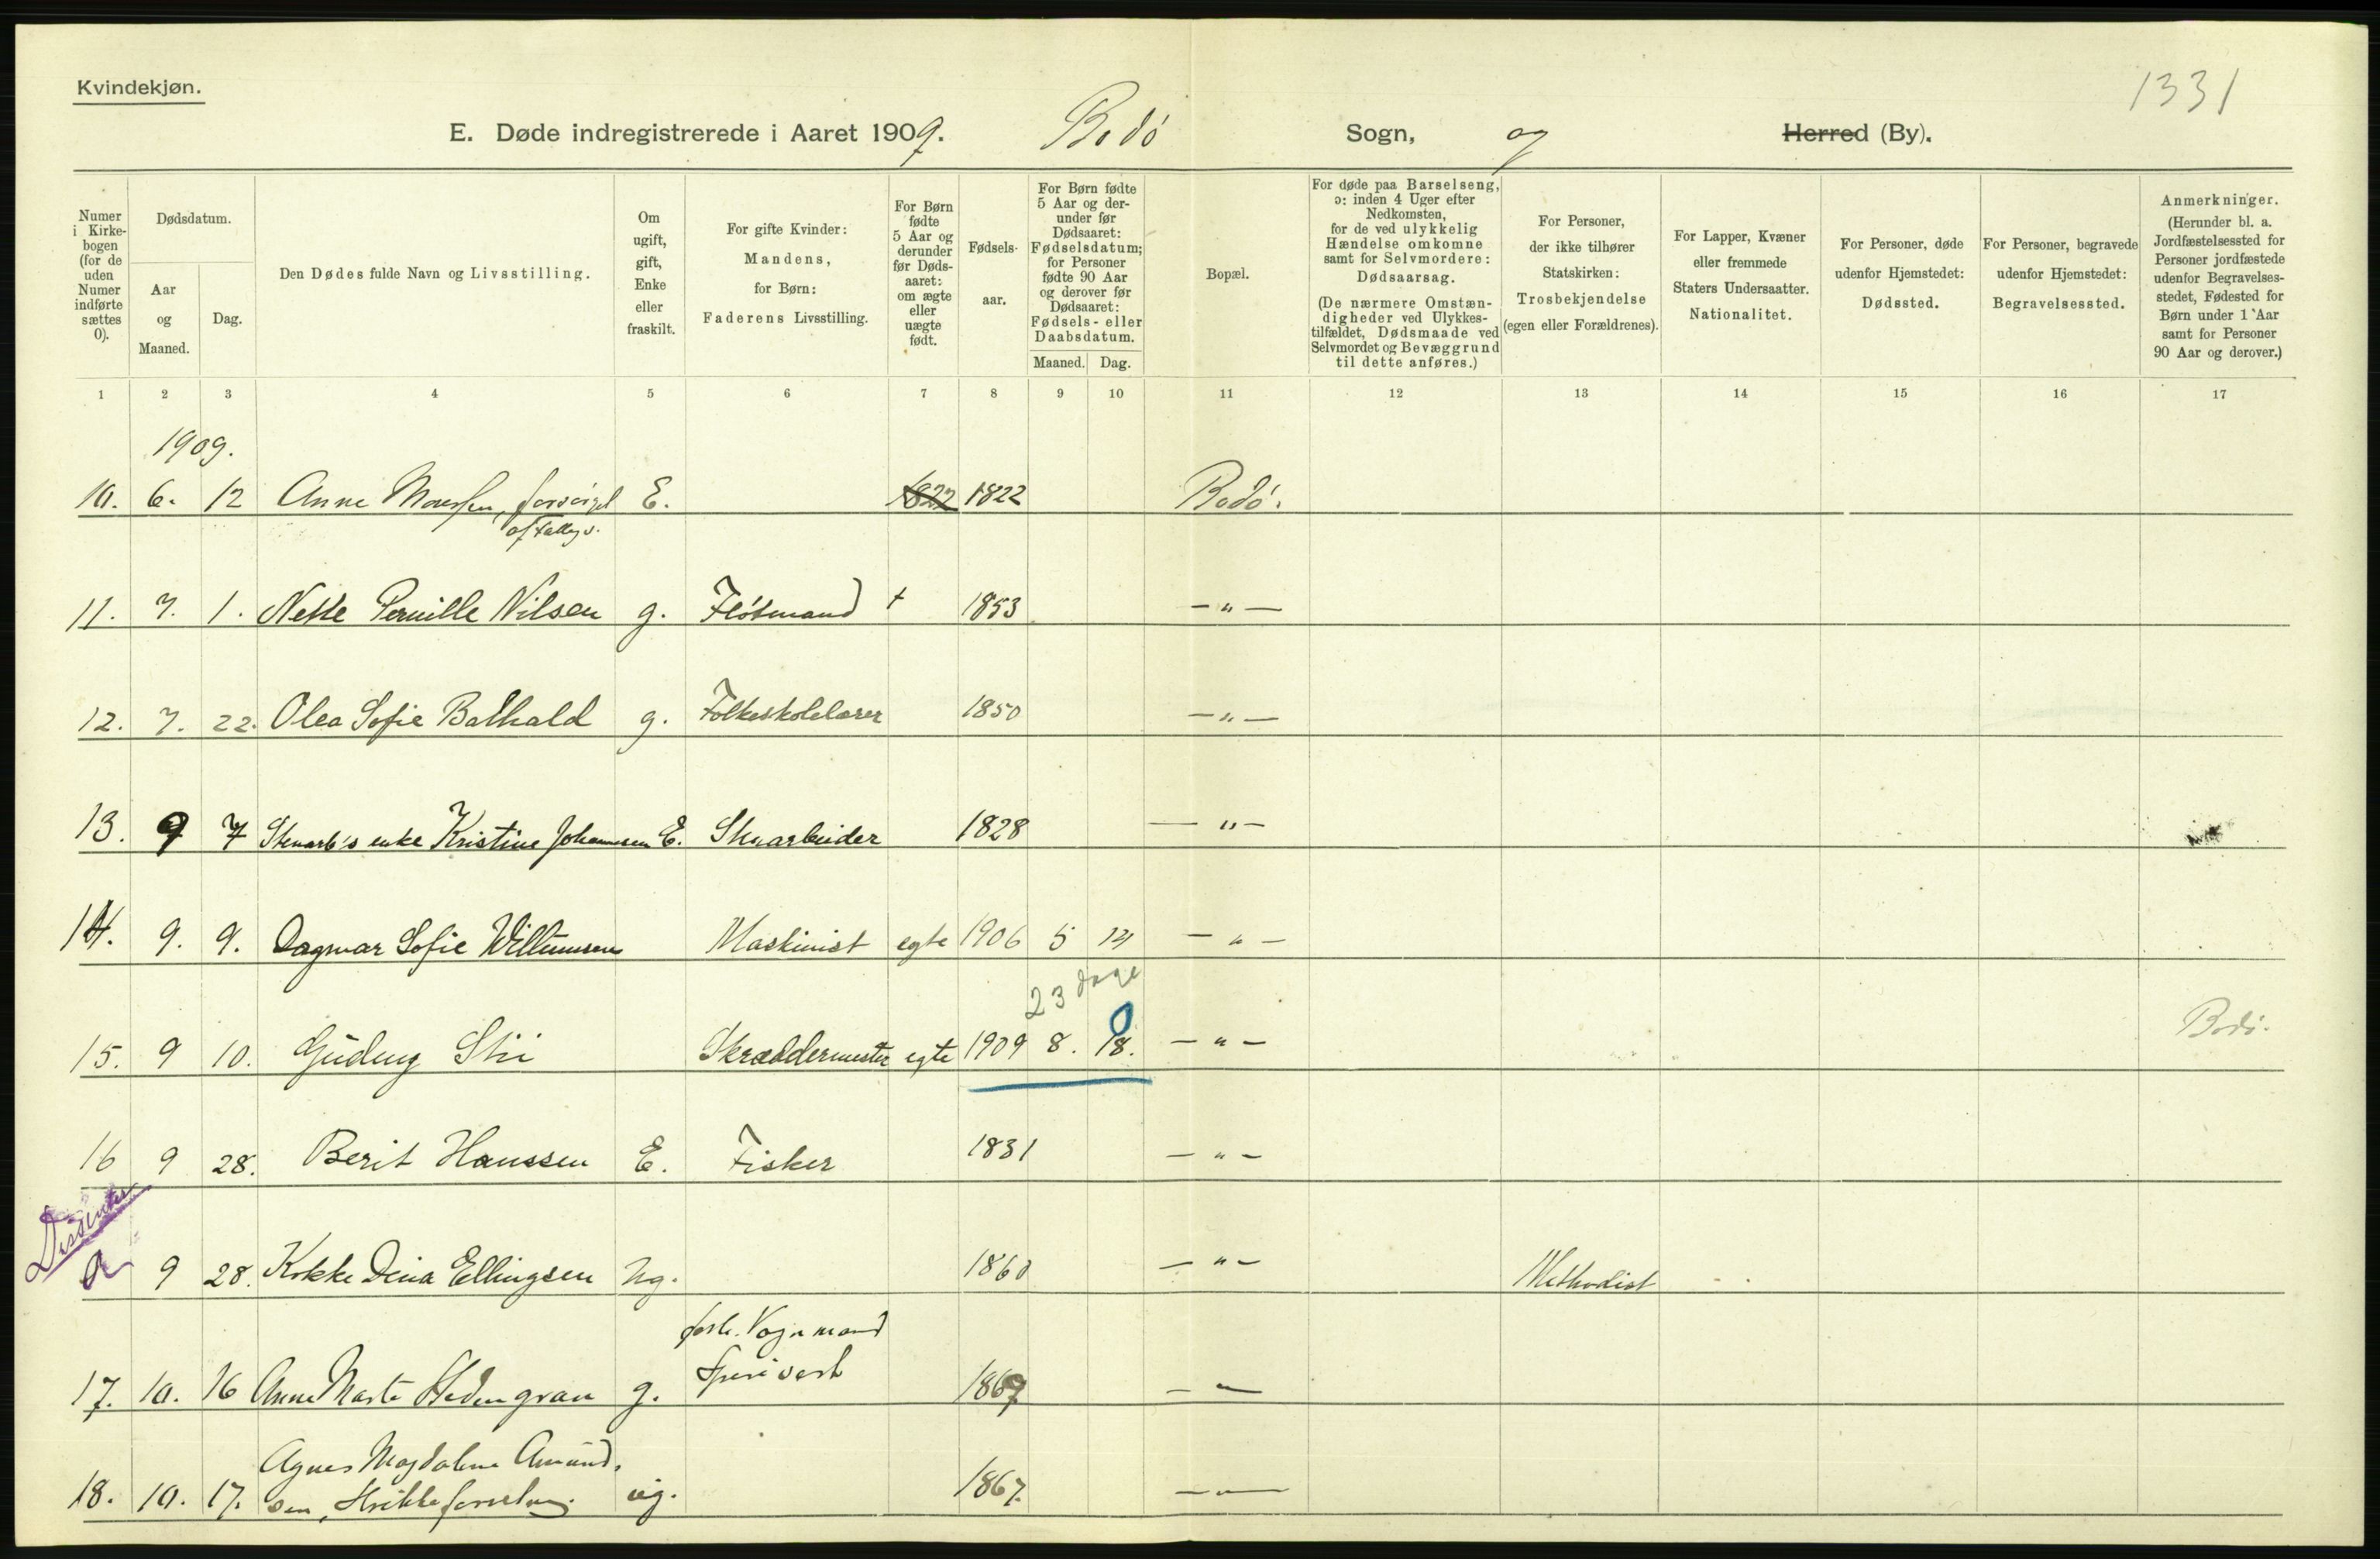 Kvindekjøn.
1331
E. Døde indregistrerede i Aaret 1909. Bodö Sogn, og Herred (By).
Numer i Kirke-bogen (for de uden Numer indførte sættes 0).
Dødsdatum.
Aar og Maaned.
Dag.
Den Dødes fulde Navn og Livsstilling.
Om ugift, gift, Enke eller fraskilt.
For gifte Kvinder: Mandens, for Børn: Faderens Livsstilling.
For Børn fødte 5 Aar og derunder før Døds-aaret: om ægte eller uægte født.
Fødsels-aar.
For Børn fødte 5 Aar og der-under før Dødsaaret: Fødselsdatum; for Personer fødte 90 Aar og derover før Dødsaaret: Fødsels- eller Daabsdatum.
Maaned. Dag.
Bopæl.
For døde paa Barselseng, ɔ: inden 4 Uger efter Nedkomsten, for de ved ulykkelig Hændelse omkomne samt for Selvmordere: Dødsaarsag. (De nærmere Omstæn-digheder ved Ulykkes-tilfældet, Dødsmaade ved Selvmordet og Bevæggrund til dette anføres.)
For Personer, der ikke tilhører Statskirken: Trosbekjendelse (egen eller Forældrenes).
For Lapper, Kvæner eller fremmede Staters Undersaatter. Nationalitet.
For Personer, døde udenfor Hjemstedet: Dødssted.
For Personer, begravede udenfor Hjemstedet: Begravelsessted.
Anmerkninger. (Herunder bl. a. Jordfæstelsessted for Personer jordfæstede udenfor Begravelses-stedet, Fødested for Børn under 1 Aar samt for Personer 90 Aar og derover.)
1 2 3 4 5 6 7 8 9 10 11 12 13 14 15 16 17
1909.
10. 6. 12 Anne forsörget E. 1822 1822 Bodö.
af fattigv.
11. 7. 1. Nette Pernille Nilsen g. Fløtmand + 1853 — " —
12. 7. 22. Olea Sofie Balhald g. Folkeskolelærer 1850 — " —
13. 9 7 Stenarb's enke Kristine Johannesen E. Stenarbeider 1828 — " —
14. 9. 9. Dagmar Sofie Willumsen Maskinist egte 1906 5 14 — " —
23 dage
15. 9 10. Gudny Stii Skræddermester egte 1909 8. 18. — " — Bodö.
16 9 28. Berit Hanssen E. Fisker 1831 — " —
Dissenter
0 9 28. Kokke Dina Ellingsen ug. 1860 — " — Methodist
forh. Vognmand
17. 10. 16 Anne Marte Hedengran g. 1867 — " —
Agnes Magdalene Amund-
18. 10. 17. sen, ug. 1867. — " —